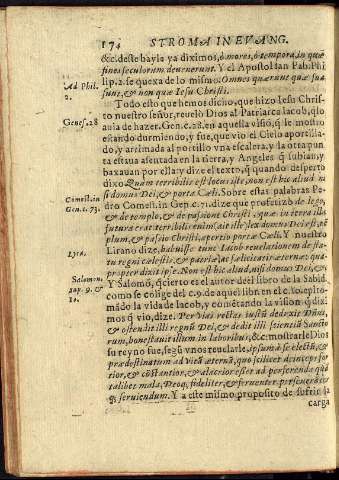 174 STROMA IN EVANG.
&c. deste bayla ya diximos, ò mores, ò tempora, in quæ
fines seculorum deuenerunt. Y el Apostol san Pab. Phi
lip. 2. se quexa de lo mismo. Omnes quærunt quæ sua
Ad Phil.
2.
sunt, & non quæ Iesu Christi.
Todo esto que hemos dicho, que hizo Iesu Chris-
to nuestro señor, reuelò Dios al Patriarca Iacob, q̃ lo
Genes. 28
auia de hazer. Gen. c. 28. en aquella visiõ, q̃ le mostrò
estando durmiendo, y fue, que vio el Cielo aportilla-
do, y arrimada al portillo vna escalera, y la otra pun
ta estaua asentada en la tierra, y Angeles q̃ subian, y
baxauan por ella: y dize el texto, q̃ quando desperto
dixo Quàm terribilis est locus iste, non est hic aliud ni
si domus Dei, & porta Cæli. Sobre estas palabras Pe
Comest. in
Gen. c. 73.
dro Comest. in Gen. c. 73. dize que profetizò de lege,
& de templo, & de passione Christi, quæ in terra illa
futura erat terribilis enim (ait ille) ex domus Dei est,
plum, & passio Christi, apertio portæ Cæli. Y nuestro
Lyra.
Lirano dize, habuisse tunc Iacob reuelationem de sta
tu regni cælestis, & patriæ, ac fælicitatis æternæ: qua
propter dixit ipse. Non est hic aliud, nisi domus Dei, &
Salomon.
sap. 9. &
10.
Y Salomõ, q̃ cierto es el autor del libro de la Sabid.
como se colige del c. 9. de aquel libr. en el c. 10. epilo-
mãdo la vida de Iacob, y comẽtando la vision q̃ dixi
mos q̃ vio, dize. Per vias rectas iustũ deduxit Dñs,
& ostendit illi regnũ Dei, & dedit illi scienciã Sancto
rum, honestauit illum in laboribus, &c. mostrarle Dios
su reyno fue, segũ vnos reuelarle, ipsum à se electũ, &
prædestinatum ad vitã æternã: quo scilicet
rior, & cõstantior, & alacrior esset ad perferenda quæ
talibet mala, Deoq́, fideliter, & feruenter
seruiendum. Y a este mismo proposito de sufrir la
carga